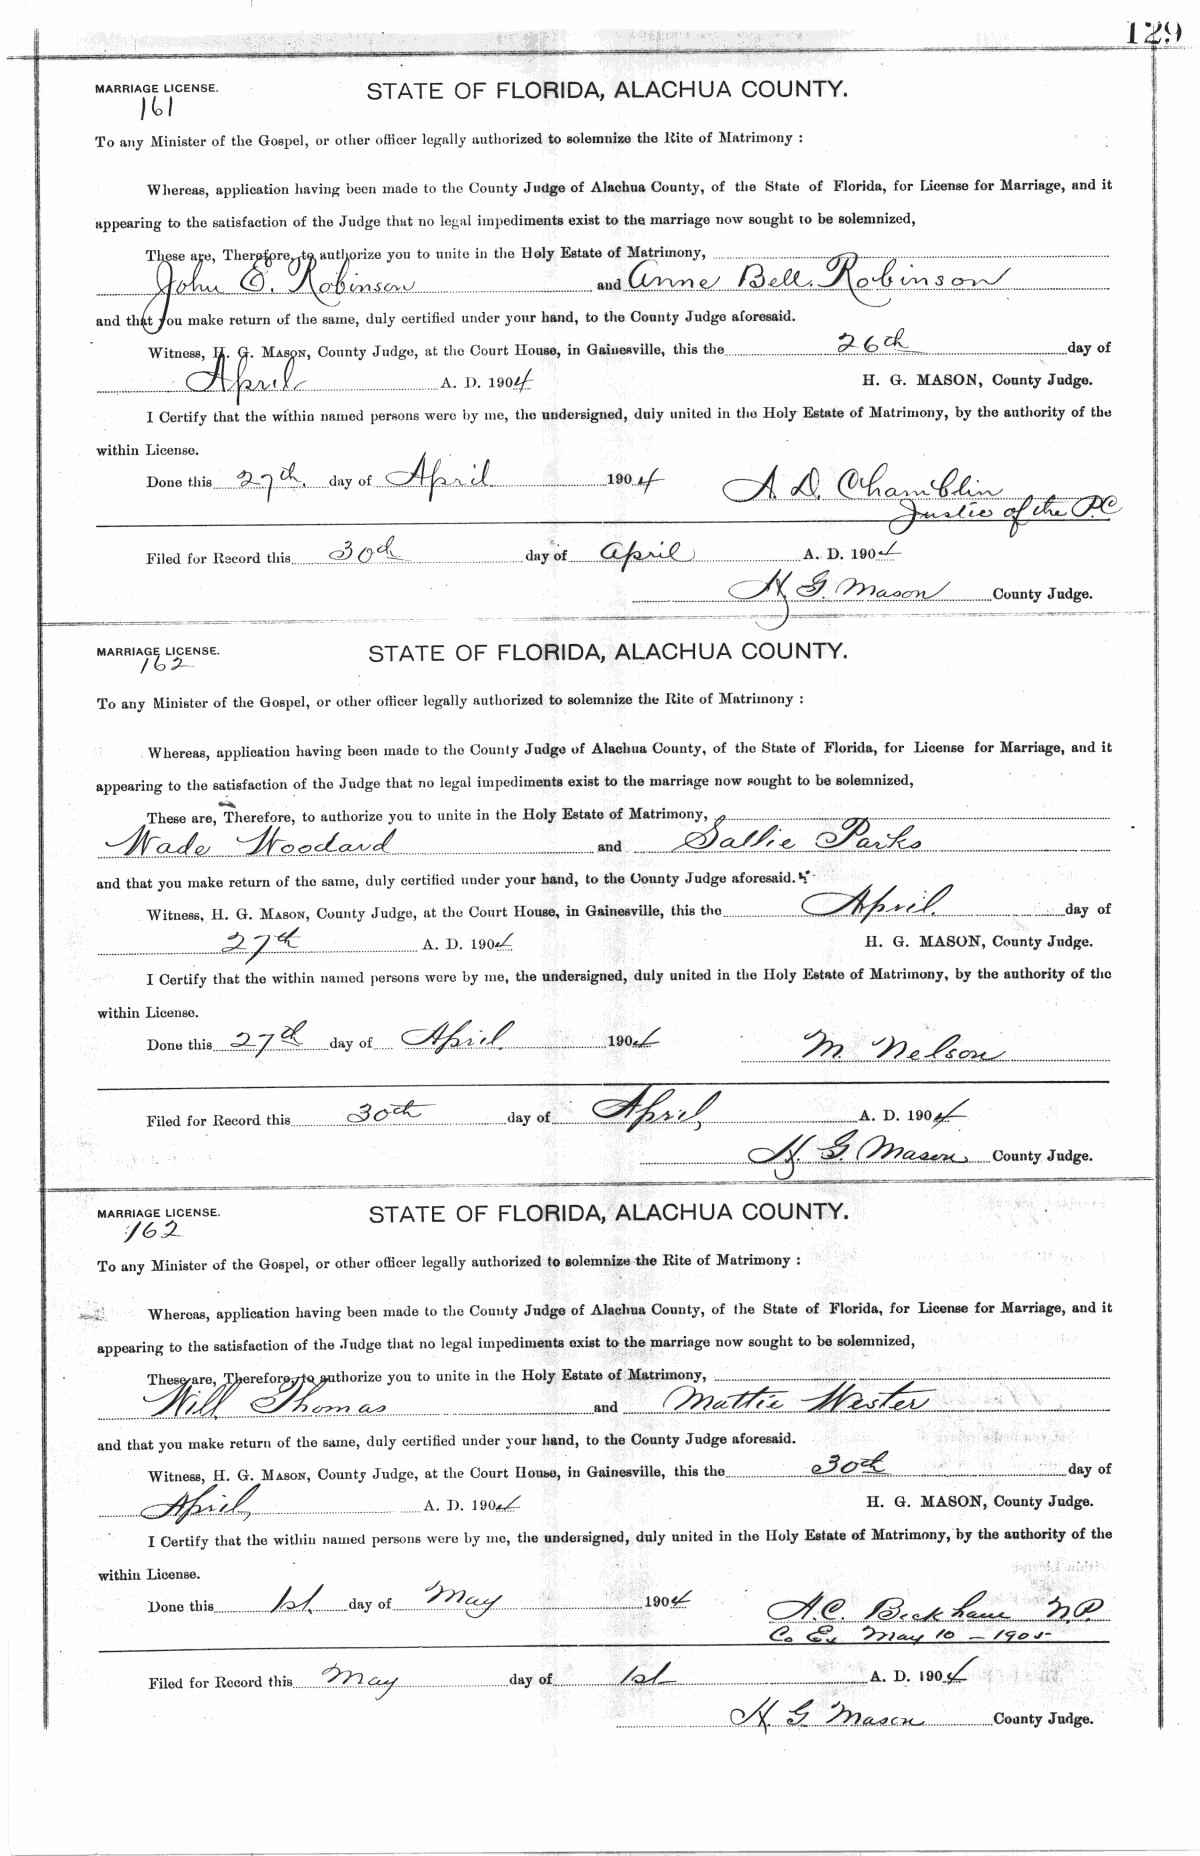 129
MARRIAGE LICENSE.
161
STATE OF FLORIDA, ALACHUA COUNTY.
To any Minister of the Gospel, or other officer legally authorized to solemnize the Rite of Matrimony :
Whereas, application having been made to the County Judge of Alachua County, of the State of Florida, for License for Marriage, and it
appearing to the satisfaction of the Judge that no legal impediments exist to the marriage now sought to be solemnized,
These are, Therefore, to authorize you to unite in the Holy Estate of Matrimony,
John E. Robinson and Anne Bell. Robinson
and that you make return of the same, duly certified under your hand, to the County Judge aforesaid.
Witness, H. G. MASON, County Judge, at the Court House, in Gainesville, this the 26th day of
April A. D. 1904 H. G. MASON, County Judge.
I Certify that the within named persons were by me, the undersigned, duly united in the Holy Estate of Matrimony, by the authority of the
within License.
Done this 27th. day of April 1904 A D. Chamblin
Justice of the P.C
Filed for Record this 30th day of April A. D. 1904
H G. Mason County Judge.
MARRIAGE LICENSE.
162
STATE OF FLORIDA, ALACHUA COUNTY.
To any Minister of the Gospel, or other officer legally authorized to solemnize the Rite of Matrimony :
Whereas, application having been made to the County Judge of Alachua County, of the State of Florida, for License for Marriage, and it
appearing to the satisfaction of the Judge that no legal impediments exist to the marriage now sought to be solemnized,
These are, Therefore, to authorize you to unite in the Holy Estate of Matrimony,
Wade Woodard and Sallie Parks
and that you make return of the same, duly certified under your hand, to the County Judge aforesaid.
Witness, H. G. MASON, County Judge, at the Court House, in Gainesville, this the April. day of
27th A. D. 1904 H. G. MASON, County Judge.
I Certify that the within named persons were by me, the undersigned, duly united in the Holy Estate of Matrimony, by the authority of the
within License.
Done this 27th day of April. 1904 M. Nelson
Filed for Record this 30th day of April, A. D. 1904
H. G. Mason, County Judge.
MARRIAGE LICENSE.
162
STATE OF FLORIDA, ALACHUA COUNTY.
To any Minister of the Gospel, or other officer legally authorized to solemnize the Rite of Matrimony :
Whereas, application having been made to the County Judge of Alachua County, of the State of Florida, for License for Marriage, and it
appearing to the satisfaction of the Judge that no legal impediments exist to the marriage now sought to be solemnized,
These are, Therefore, to authorize you to unite in the Holy Estate of Matrimony,
Will Thomas and Mattie Wester
and that you make return of the same, duly certified under your hand, to the County Judge aforesaid.
Witness, H. G. MASON, County Judge, at the Court House, in Gainesville, this the 30th day of
April, A. D. 1904 H. G. MASON, County Judge.
I Certify that the within named persons were by me, the undersigned, duly united in the Holy Estate of Matrimony, by the authority of the
within License.
Done this 1st. day of May 1904 A.C. Beckham N.P.
Co Ex May 10 - 1905-
Filed for Record this May day of 1st A. D. 1904
H. G. Mason County Judge.